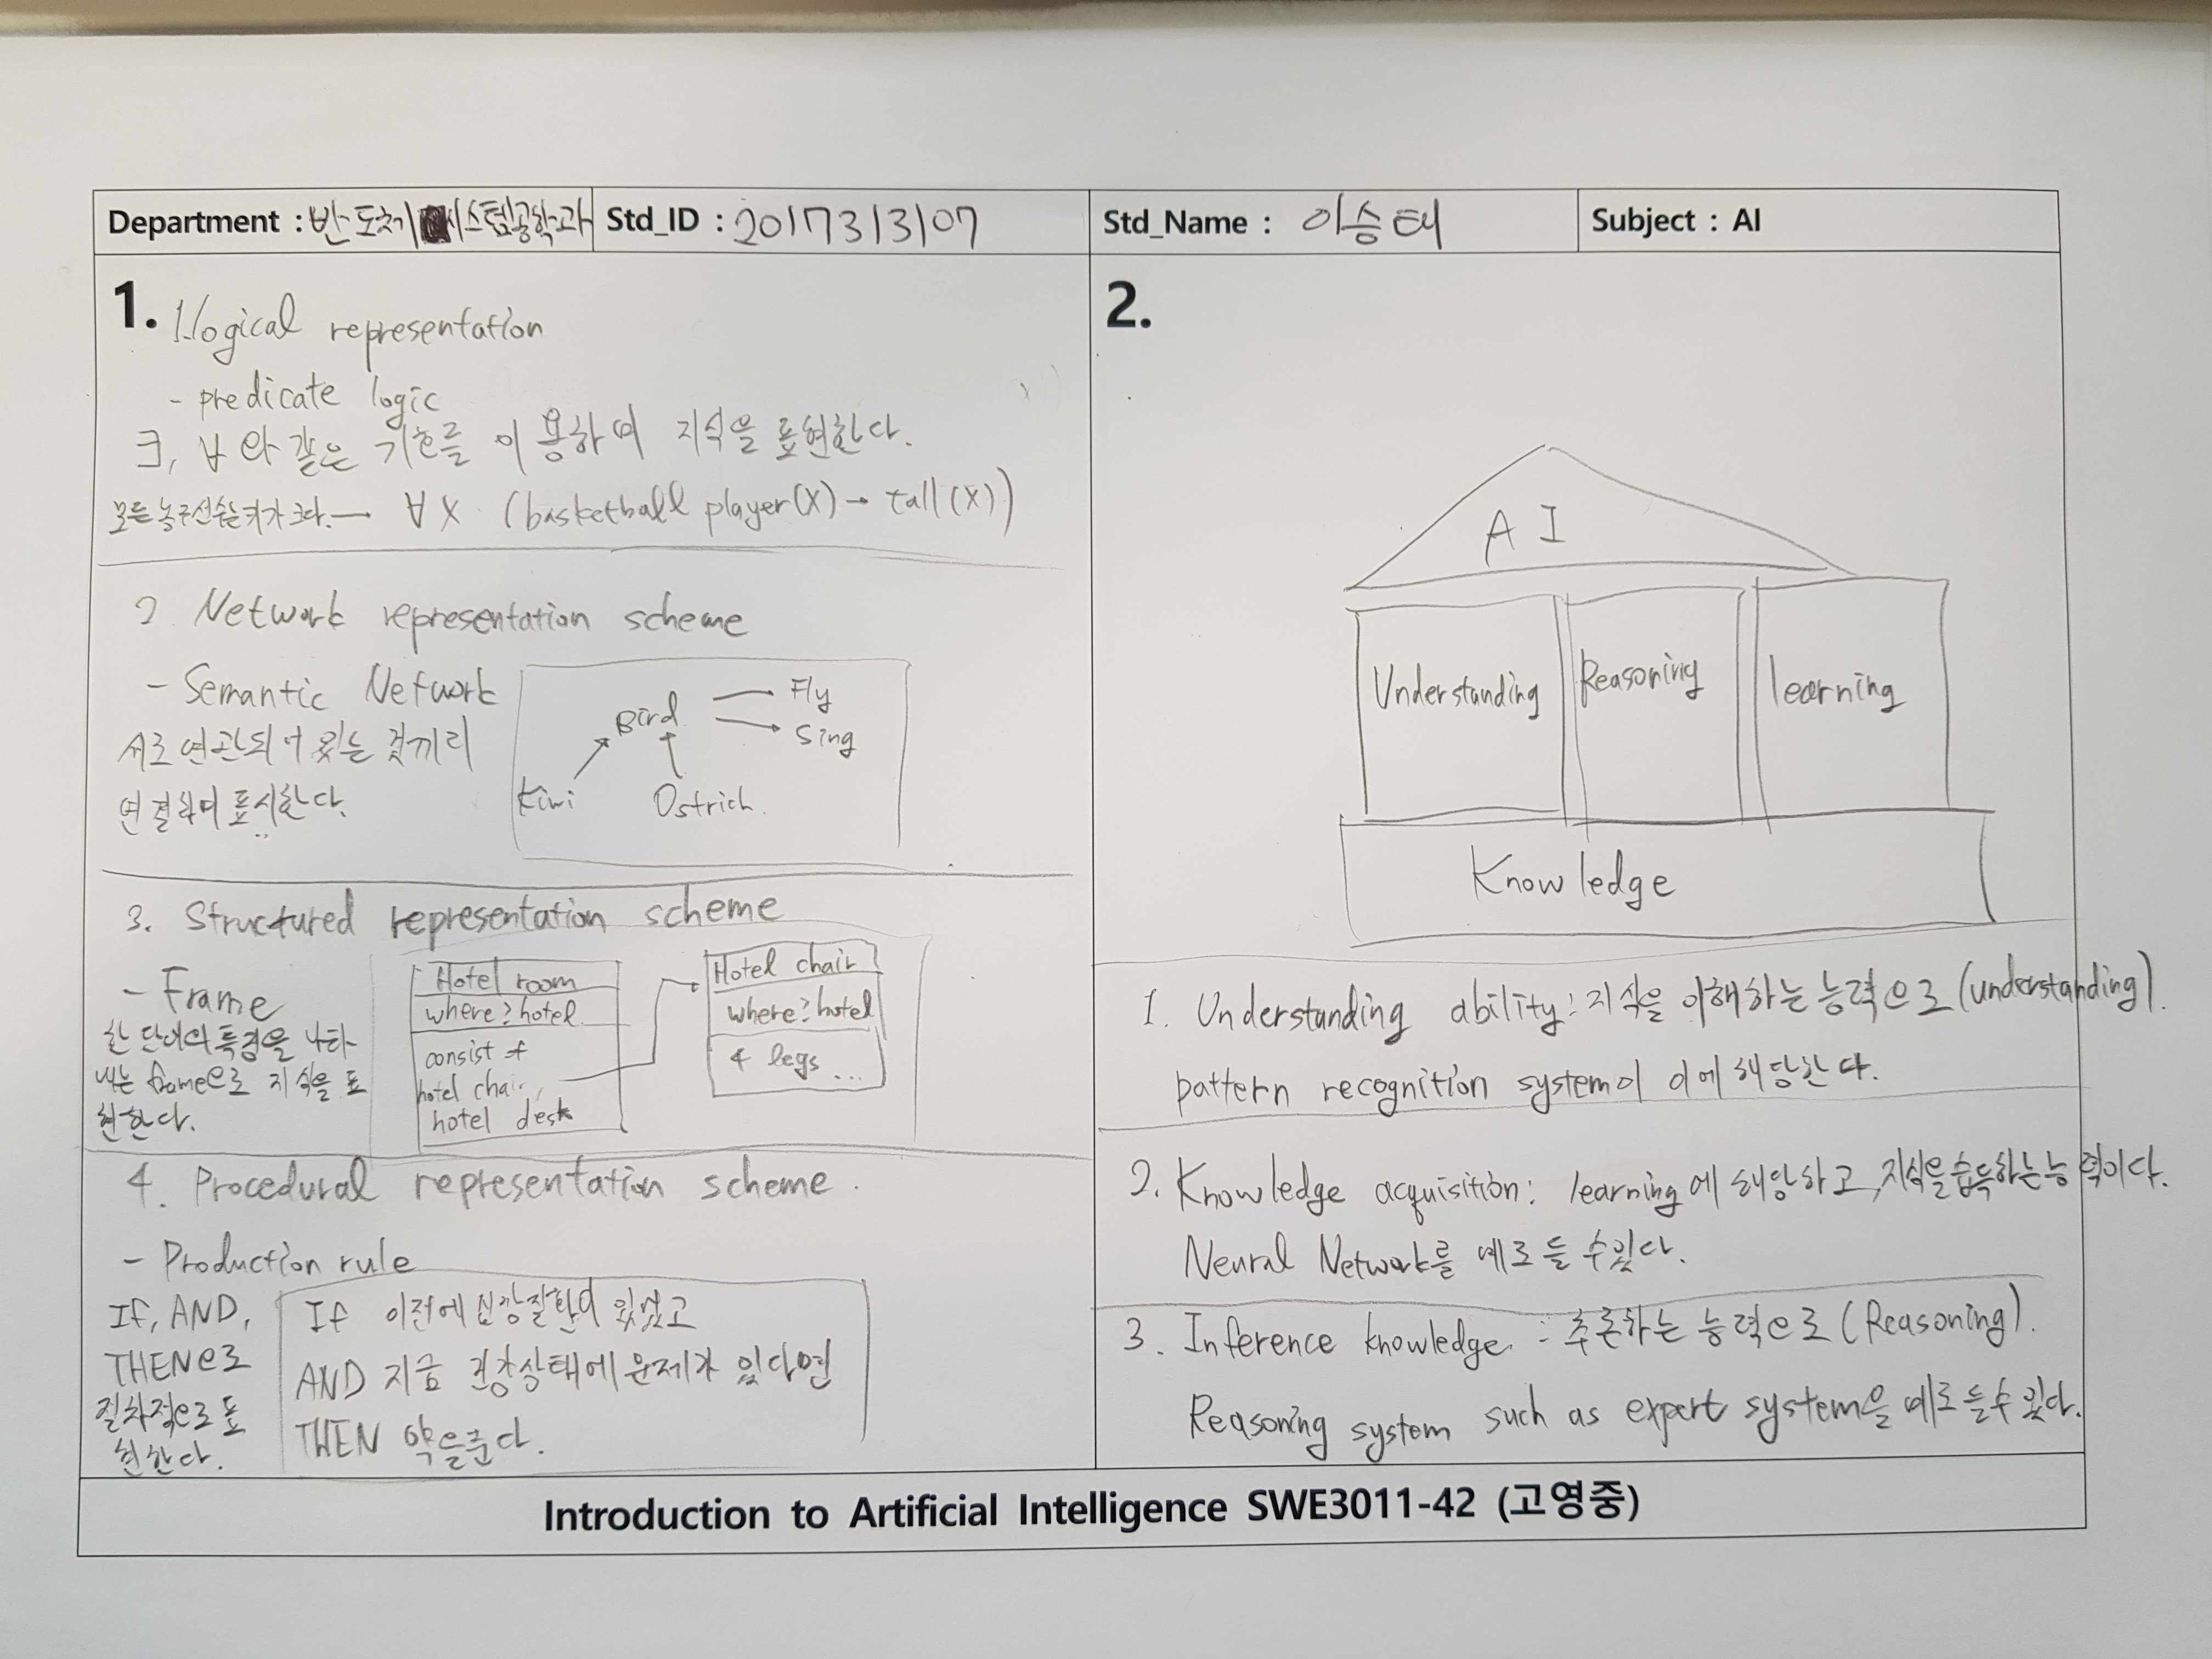 Department : 반도체시스템공학과 Std_ID : 2017313107 Std_Name : 이승태 Subject : AI
1. 1. logical representation
- predicate logic
∃, ∀ 와 같은 기호를 이용하여 지식을 표현한다.
모든 농구선수는 키가 크다. — ∀x. (basketball player(x) → tall(x))
2. Network representation scheme
- Semantic Network
서로 연관되어 있는 것끼리
연결하여 표시한다.
Bird → Fly
→ Sing
Kiwi Ostrich
3. Structured representation scheme
- Frame
한 단어의 특징을 나타
내는 frame으로 지식을 표
현한다.
Hotel room
where : hotel
consist of
hotel chair
hotel desk
Hotel chair
where : hotel
4 legs ...
4. Procedural representation scheme.
- Production rule
IF, AND,
THEN으로
절차적으로 표
현한다.
IF 이전에 심장질환이 있었고
AND 지금 건강상태에 문제가 있다면
THEN 약을 준다.
2.
AI
Understanding Reasoning learning
Knowledge
1. Understanding ability : 지식을 이해하는 능력으로 (understanding).
pattern recognition system이 이에 해당한다.
2. Knowledge acquisition : learning에 해당하고, 지식을 습득하는 능력이다.
Neural Network를 예로 들 수 있다.
3. Inference knowledge. : 추론하는 능력으로 (Reasoning).
Reasoning system such as expert system을 예로 들 수 있다.
Introduction to Artificial Intelligence SWE3011-42 (고영중)